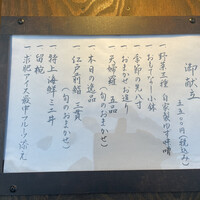 御献立
五五〇〇円(税込み)
一 野菜三種 自家製ゆず味噌
一 おもてなし小鉢
一 季節の先八寸
一 おまかせお造り
一 天婦羅 五品
(旬のおまかせ)
一 本日の逸品
一 江戸前鮨 三貫
(旬のおまかせ)
一 特上海鮮ミニ丼
一 留椀
一 求肥アイス最中フルーツ添え